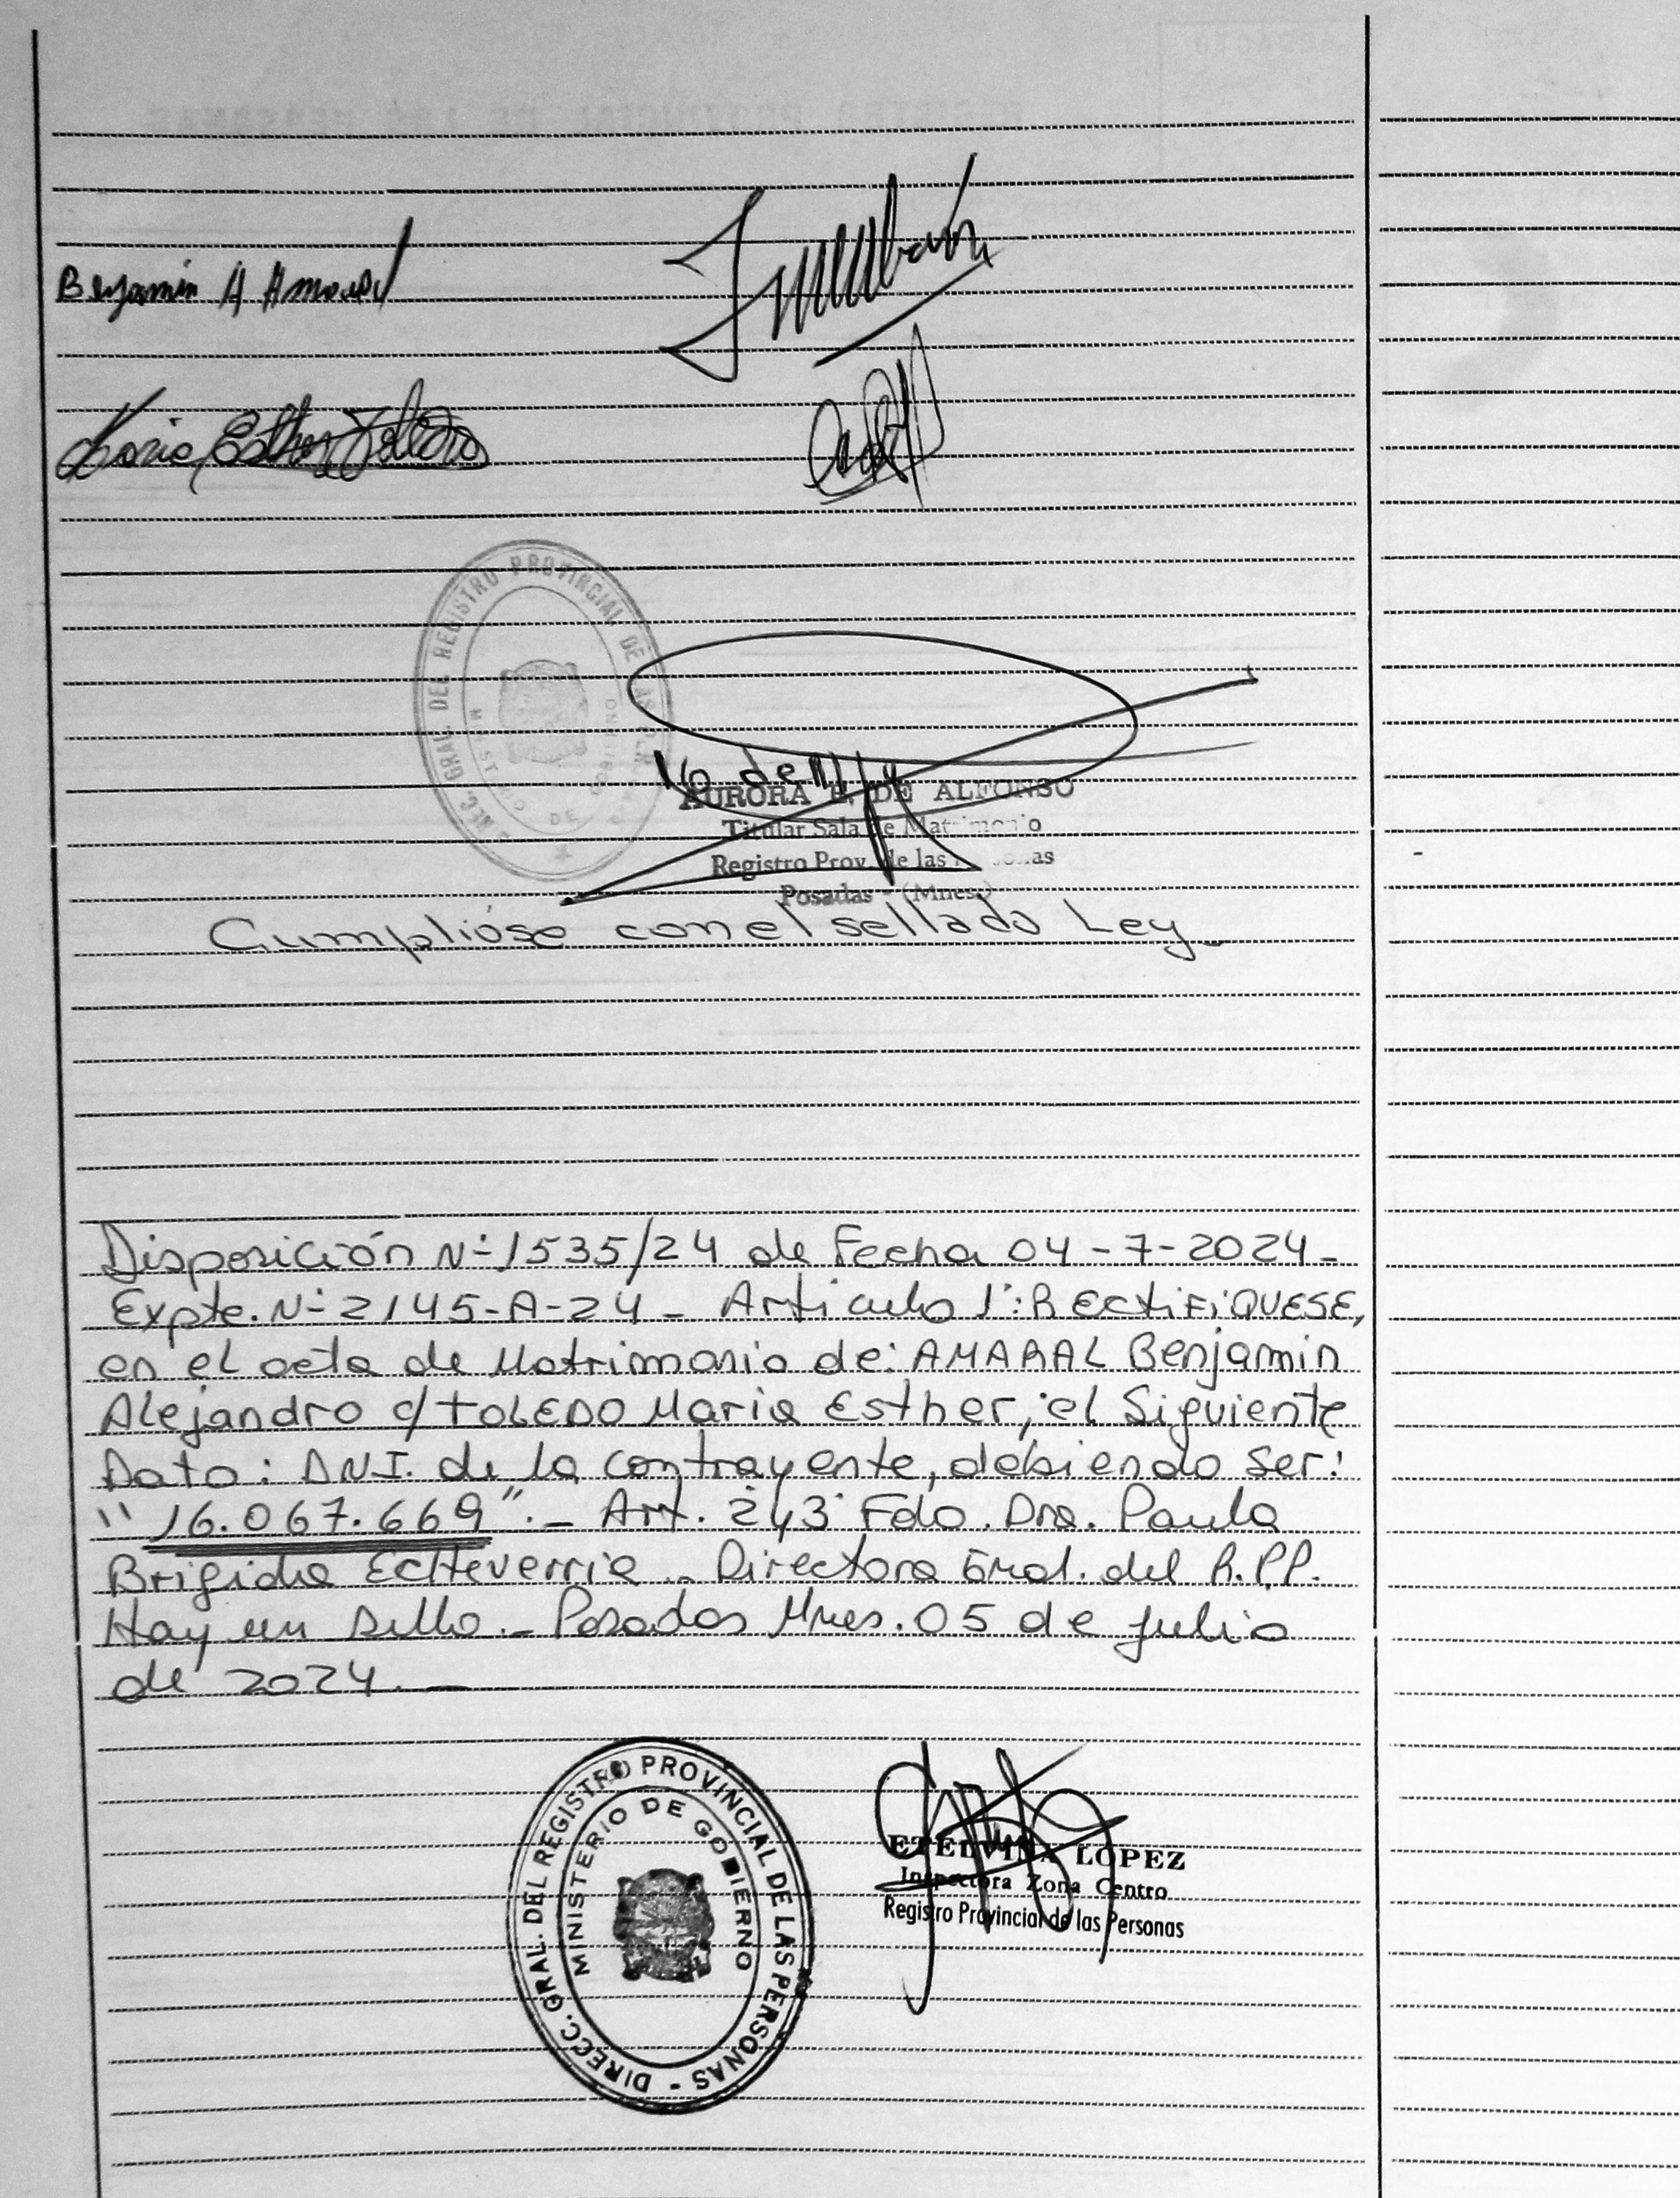 Benjamin A Amaral
Maria Esther Toledo
DIRECC. GRAL. DEL REGISTRO PROVINCIAL DE
DE
AURORA E. DE ALFONSO
Titular Sala de Matrimonio
Registro Prov. de las Personas
Posadas - (Mnes.)
Cumplióse con el sellado Ley.
Disposición Nº 1535/24 de Fecha 04-7-2024-
Expte. Nº 2145-A-24 - Articulo 1º: RECtiFiQUESE,
en el acta de Matrimonio de: AMARAL Benjamin
Alejandro c/ TOLEDO Maria Esther, el Siguiente
Dato: DNI. de la contrayente, debiendo ser:
"16.067.669".- Art. 2y3 Fdo. Dra. Paula
Brigida EcHeverria - Directora Gral. del R.P.P.
Hay un sello.- Posadas Mnes. 05 de julio
de 2024.-
DIRECC. GRAL. DEL REGISTRO PROVINCIAL DE LAS PERSONAS -
MINISTERIO DE GOBIERNO
ETELVINA LOPEZ
Inspectora Zona Centro
Registro Provincial de las Personas